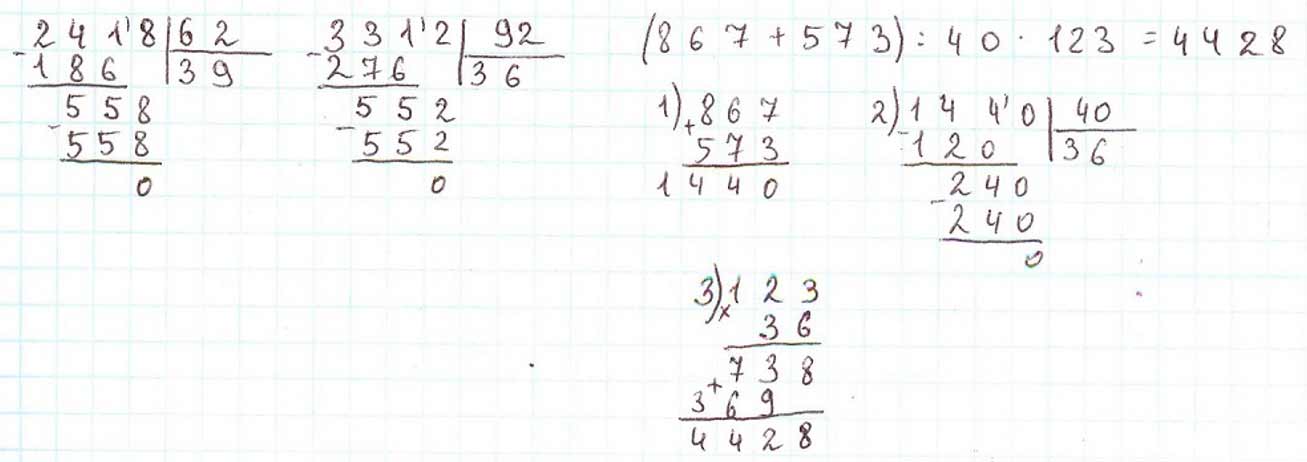 2418 | 62
- 186 | 39
558
- 558
0
3312 | 92
- 276 | 36
552
- 552
0
(867 + 573) : 40 · 123 = 4428
1) 867
+ 573
1440
2) 1440 | 40
- 120 | 36
240
- 240
0
3) 123
x 36
738
+ 369
4428